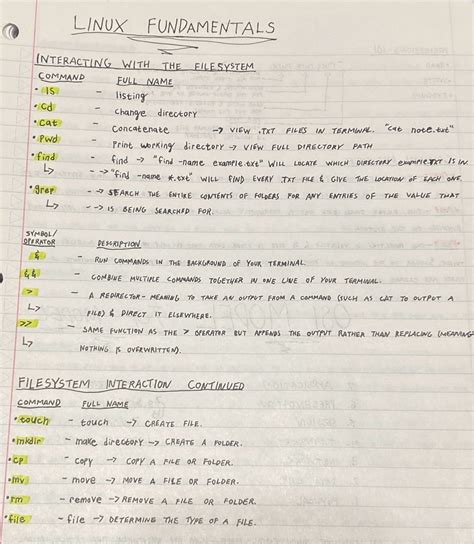 LINUX FUNDAMENTALS
INTERACTING WITH THE FILESYSTEM
COMMAND FULL NAME
• ls - listing
• cd - change directory
• cat - Concatenate → VIEW .TXT FILES IN TERMINAL. "cat note.txt"
• pwd - Print working directory → VIEW FULL DIRECTORY PATH
• find - find → "find -name example.txt" WILL LOCATE WHICH DIRECTORY example.TXT IS IN.
↳ --> "find -name *.txt" WILL FIND EVERY .TXT FILE & GIVE THE LOCATION OF EACH ONE.
• grep --> SEARCH THE ENTIRE CONTENTS OF FOLDERS FOR ANY ENTRIES OF THE VALUE THAT
↳ --> IS BEING SEARCHED FOR.
SYMBOL/
OPERATOR DESCRIPTION
& - RUN COMMANDS IN THE BACKGROUND OF YOUR TERMINAL.
&& - COMBINE MULTIPLE COMMANDS TOGETHER IN ONE LINE OF YOUR TERMINAL.
> - A REDIRECTOR - MEANING TO TAKE AN OUTPUT FROM A COMMAND (SUCH AS CAT TO OUTPUT A
↳ FILE) & DIRECT IT ELSEWHERE.
>> - SAME FUNCTION AS THE > OPERATOR BUT APPENDS THE OUTPUT RATHER THAN REPLACING (MEANING
↳ NOTHING IS OVERWRITTEN).
FILESYSTEM INTERACTION CONTINUED
COMMAND FULL NAME
• touch - touch → CREATE FILE.
• mkdir - make directory → CREATE A FOLDER.
• cp - copy → COPY A FILE OR FOLDER.
• mv - move → MOVE A FILE OR FOLDER.
• rm - remove → REMOVE A FILE OR FOLDER.
• file - file → DETERMINE THE TYPE OF A FILE.